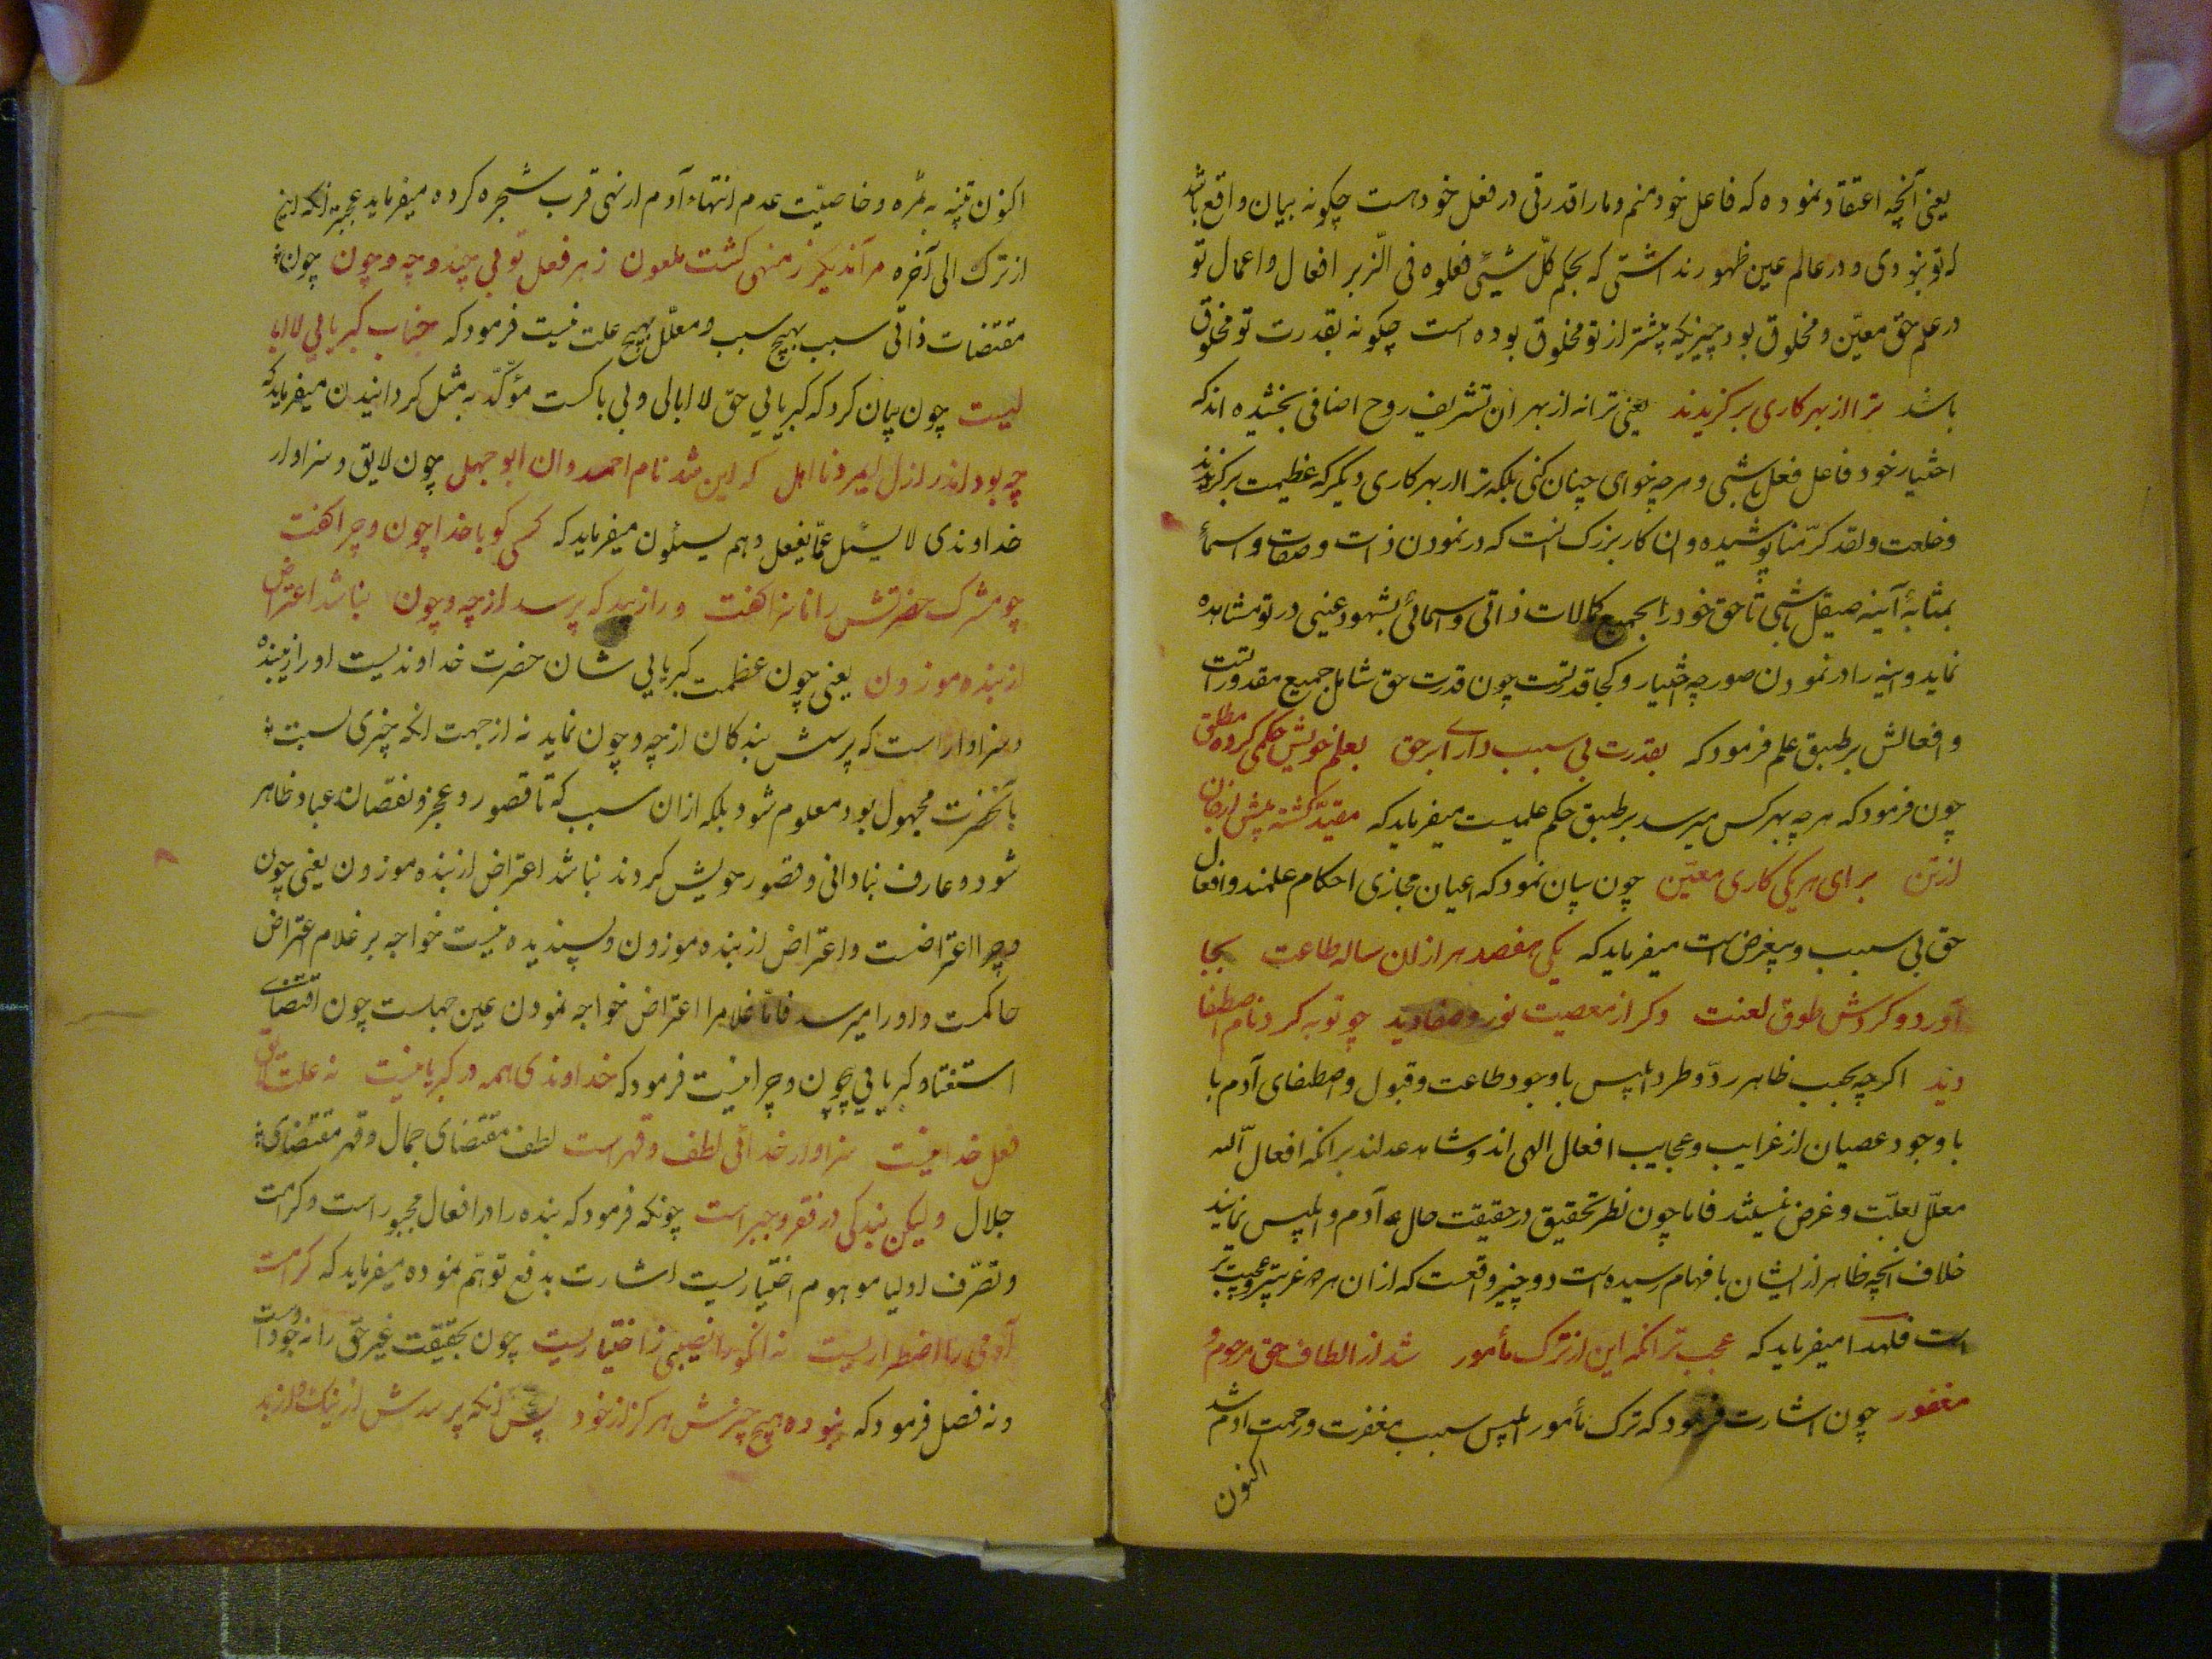 یعنی آنچه اعتقاد نموده که فاعل خود منم و مارا قدرتی در فعل خود هست چکونه بیان واقع باشد
که تو نبودی و در عالم عین ظهور نداشتی که بحکم کلّ شیئ فعلوه فی الزّبر افعال و اعمال تو
در علم حق معیّن و مخلوق بود چیزیکه پیشتر از تو مخلوق بوده است چکونه بقدرت تو مخلوق
باشد ترا از بهر کاری برکزیدند یعنی ترا نه از بهر ان تشریف روح اضافی بخشیده اند که
اختیار خود فاعل فعل باشی و هر چه خوای چنان کنی بلکه ترا از بهر کاری دیکر که عظیمست برکزیدند
و خلعت ولقد کرّمنا پوشیده و ان کار بزرک انست که در نمودن ذات و صفات و اسمآ
بمثابهٔ آینه صیقل باشی تا حق خود را بجمیع کمالات ذاتی و اسمائی بشهود عینی در تو مشاهده
نماید و اینه را در نمودن صور چه اختیار و کجا قدرتست چون قدرت حق شامل جمیع مقدوراتست
و افعالش بر طبق علم فرمود که بقدرت بی سبب دارای بر حق بعلم خویش حکمی کرده مطلق
چون فرمود که هر چه بهر کس میرسد بر طبق حکم علمیست میفرماید که مقیّد کشته پیش از جان
از تن برای هر یکی کاری معیّن چون بیان نمود که اعیان مجازی احکام علمند و افعال
حق بی سبب و بیغرض است میفرماید که یکی هفصد هزاران ساله طاعت بجا
آورد و کردش طوق لعنت وکر از معصیت نور و صفا دید چو توبه کرد نام اصطفا
دید اکرچه بحسب ظاهر ردّ و طرد ابلیس با وجود طاعت و قبول و اصطفای آدم با
با وجود عصیان از غرایب و عجایب افعال الهی اند و شاهد عدلند بر انکه افعال اللّه
معلّل بعلّت و غرض نیستند فاما چون نظر تحقیق در حقیقت حال آدم و ابلیس نمایند
خلاف انچه ظاهر از ایشان بافهام رسیده است دو چیز واقعست که از ان هر دو غریبتر و عجیبتر
است فلهذا میفرماید که عجب تر انکه این از ترک مأمور شد از الطاف حق مرحوم و
مغفور چون اشارت فرمود که ترک مأمور ابلیس سبب مغفرت و رحمت ادم شد
اکنون
اکنون تنبیه به ثمره و خاصیّت عدم انتهاء آدم از نهی قرب شجره کرده میفرماید عجبتر انکه این
از ترک الی آخره مر آن دیکر ز منهی کشت ملعون زهر فعل تو بی چند و چه و چون چون
مقتضات ذاتی سبب بهیچ سبب و معلّل بهیچ علت نیست فرمود که جناب کبریایی لا ابا
لیست چون بیان کرد که کبریایی حق لا ابالی و بی باکست مؤکّد به مثل کردانیدن میفرماید که
چه بود اندر ازل ایمرد نااهل که این شد نام احمد و ان ابو جهل چون لایق و سزاوار
خداوندی لا یسئل عمّا یفعل و هم یسئلون میفرماید که کسی کو با خدا چون و چرا کفت
چو مشرک حضرتش را ناسزا کفت ورا زیبد که پرسد از چه و چون نباشد اعتراض
از بنده موزون یعنی چون عظمت کبریایی شان حضرت خداوندیست او را زیبنده
و سزاوار است که پرسش بندکان از چه و چون نماید نه از جهت انکه چیزی نسبت
بانحضرت مجهول بود معلوم شود بلکه ازان سبب که تا قصور و عجز و نقصان عباد ظاهر
شود و عارف بنادانی و قصور خویش کردند نباشد اعتراض از بنده موزون یعنی چون
و چرا اعتراضست و اعتراض از بنده موزون و پسندیده نیست خواجه بر غلام اعتراض
حاکمست و او را میرسد فامّا غلامرا اعتراض خواجه نمودن عین جهلست چون اقتضای
استغنا و کبریایی چون و چرا نیست فرمود که خداوندی همه در کبریا نیست نه علت لایق
فعل خدا نیست سزاوار خدائی لطف و قهر است لطف مقتضای جمال و قهر مقتضای
جلال ولیکن بندکی در فقر و جبر است چونکه فرمود که بنده را در افعال مجبور است و کرامت
و تصرّف اولیا موهوم اختیاریست اشارت بدفع توهّم نموده میفرماید که کرامت
آدمی را اضطراریست نه انکو را نصیبی ز اختیاریست چون بحقیقت غیر حق را نه وجود است
و نه فصل فرمود که نبوده هیچ چیزش هرکز از خود پس انکه پرسدش از نیک و از بد